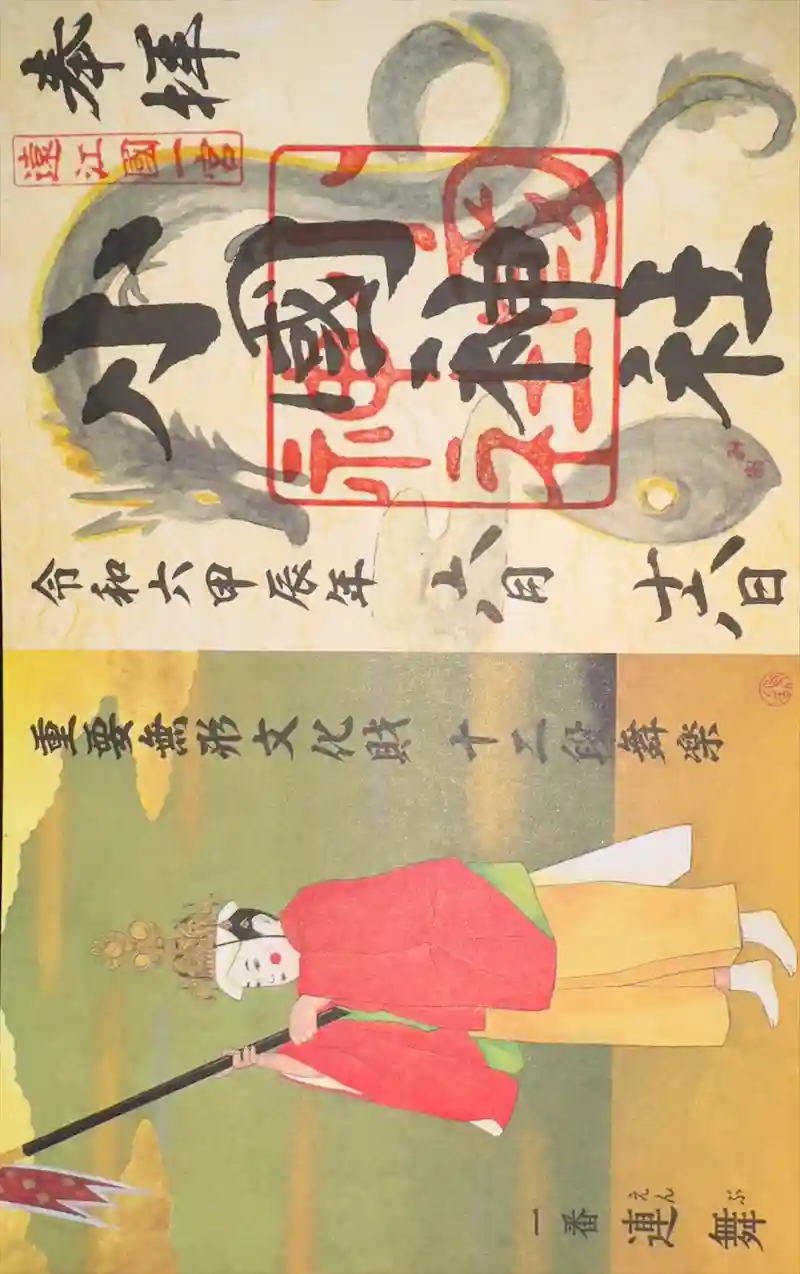 奉拝
遠江國一宮
小國神社
小國神社
令和六甲辰年 六月 十八日
重要無形文化財 十二段舞楽
一番 連舞
えん ぶ